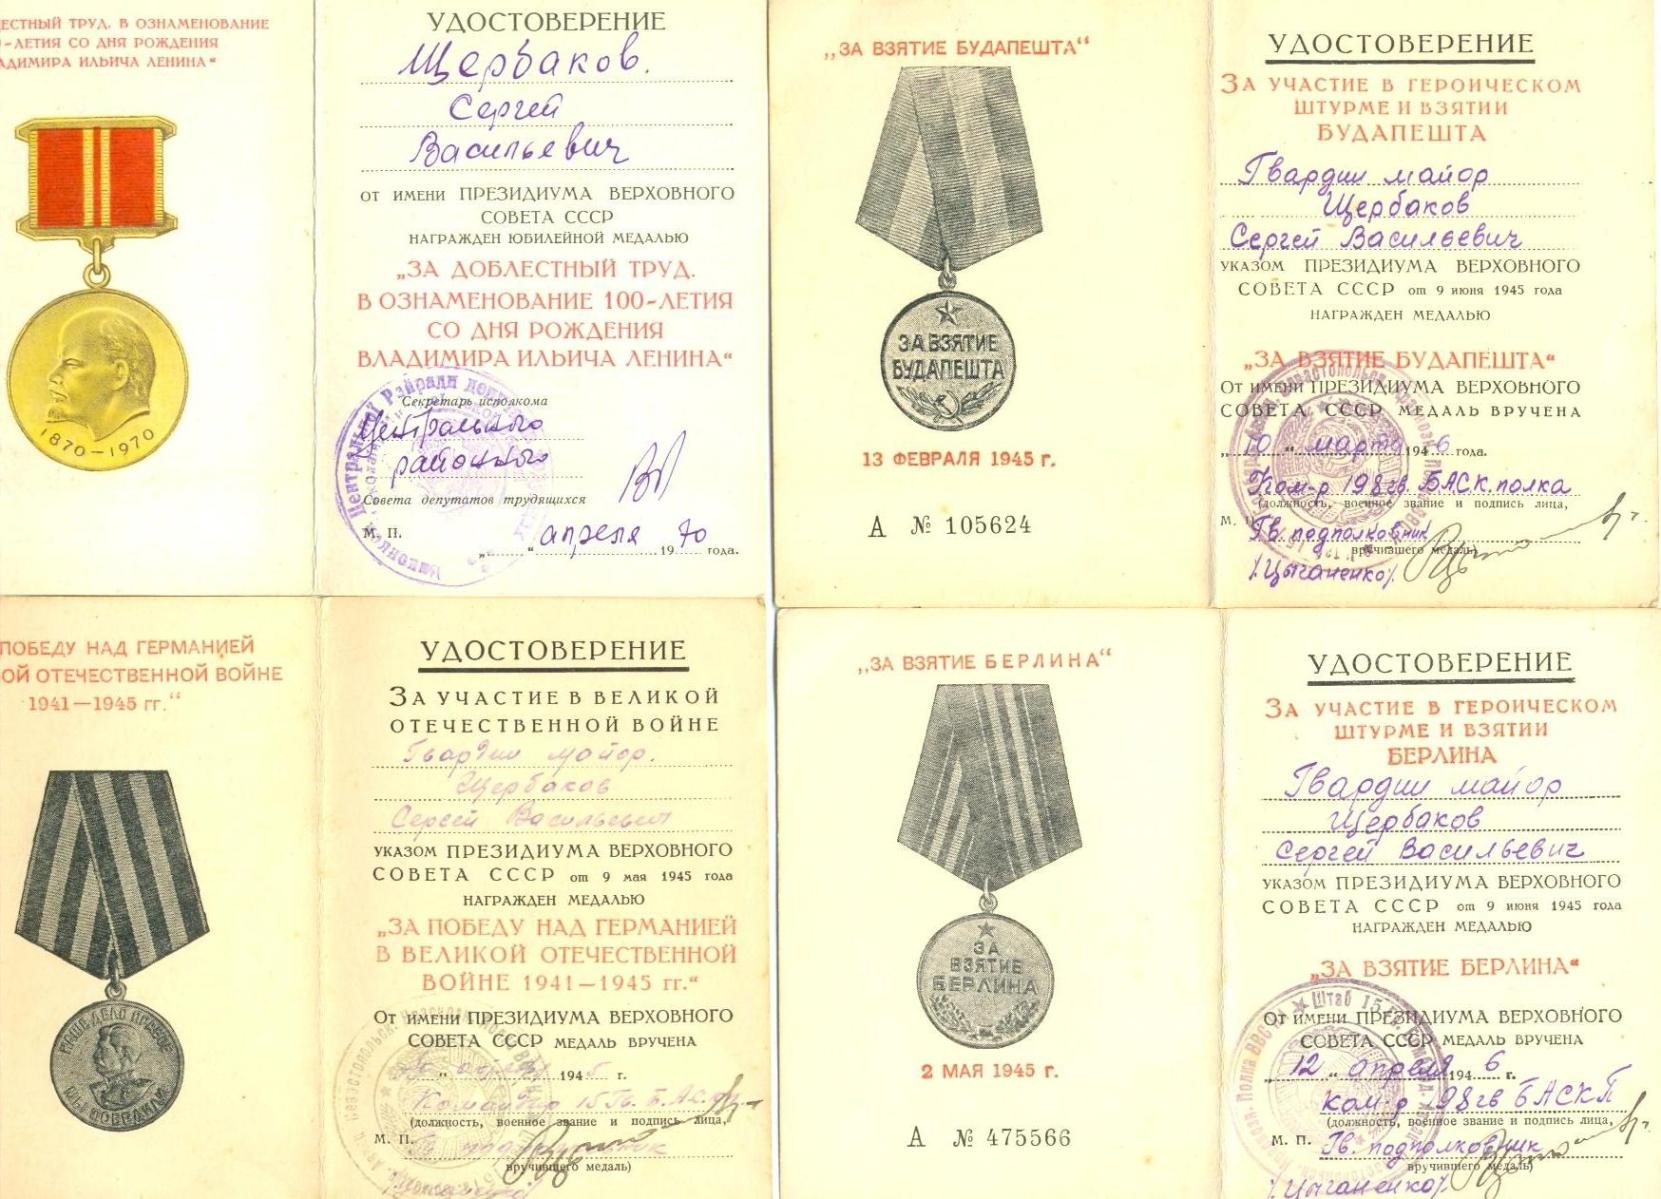 ЕСТНЫЙ ТРУД. В ОЗНАМЕНОВАНИЕ
-ЛЕТИЯ СО ДНЯ РОЖДЕНИЯ
АДИМИРА ИЛЬИЧА ЛЕНИНА“
1870-1970
УДОСТОВЕРЕНИЕ
Щербаков.
Сергей
Васильевич
от имени ПРЕЗИДИУМА ВЕРХОВНОГО
СОВЕТА СССР
НАГРАЖДЕН ЮБИЛЕЙНОЙ МЕДАЛЬЮ
„ЗА ДОБЛЕСТНЫЙ ТРУД.
В ОЗНАМЕНОВАНИЕ 100-ЛЕТИЯ
СО ДНЯ РОЖДЕНИЯ
ВЛАДИМИРА ИЛЬИЧА ЛЕНИНА“
Секретарь исполкома
Центрального
районного
Совета депутатов трудящихся
М. П.
„ “ апреля 1970 года.
„ЗА ВЗЯТИЕ БУДАПЕШТА“
ЗА ВЗЯТИЕ
БУДАПЕШТА
13 ФЕВРАЛЯ 1945 г.
А № 105624
УДОСТОВЕРЕНИЕ
ЗА УЧАСТИЕ В ГЕРОИЧЕСКОМ
ШТУРМЕ И ВЗЯТИИ
БУДАПЕШТА
Гвардии майор
Щербаков
Сергей Васильевич
УКАЗОМ ПРЕЗИДИУМА ВЕРХОВНОГО
СОВЕТА СССР от 9 июня 1945 года
НАГРАЖДЕН МЕДАЛЬЮ
„ЗА ВЗЯТИЕ БУДАПЕШТА“
ОТ ИМЕНИ ПРЕЗИДИУМА ВЕРХОВНОГО
СОВЕТА СССР МЕДАЛЬ ВРУЧЕНА
„10“ марта 1946 года.
Ком-р 198 гв БАСК. полка
(должность, военное звание и подпись лица,
М.
Гв. подполковник
вручившего медаль)
/Цыганенко/
ПОБЕДУ НАД ГЕРМАНИЕЙ
ОЙ ОТЕЧЕСТВЕННОЙ ВОЙНЕ
1941—1945 гг.“
НАШЕ ДЕЛО ПРАВОЕ
МЫ ПОБЕДИЛИ
УДОСТОВЕРЕНИЕ
ЗА УЧАСТИЕ В ВЕЛИКОЙ
ОТЕЧЕСТВЕННОЙ ВОЙНЕ
Гвардии майор.
Щербаков
Сергей Васильевич
УКАЗОМ ПРЕЗИДИУМА ВЕРХОВНОГО
СОВЕТА СССР от 9 мая 1945 года
НАГРАЖДЕН МЕДАЛЬЮ
„ЗА ПОБЕДУ НАД ГЕРМАНИЕЙ
В ВЕЛИКОЙ ОТЕЧЕСТВЕННОЙ
ВОЙНЕ 1941—1945 гг.“
ОТ ИМЕНИ ПРЕЗИДИУМА ВЕРХОВНОГО
СОВЕТА СССР МЕДАЛЬ ВРУЧЕНА
194 г.
Командир 15 Гв.
(должность, военное звание и подпись лица,
М. П.
Гв. подполковник
вручившего медаль)
„ЗА ВЗЯТИЕ БЕРЛИНА“
ЗА
ВЗЯТИЕ
БЕРЛИНА
2 МАЯ 1945 г.
А № 475566
УДОСТОВЕРЕНИЕ
ЗА УЧАСТИЕ В ГЕРОИЧЕСКОМ
ШТУРМЕ И ВЗЯТИИ
БЕРЛИНА
Гвардии майор
Щербаков
Сергей Васильевич
УКАЗОМ ПРЕЗИДИУМА ВЕРХОВНОГО
СОВЕТА СССР от 9 июня 1945 года
НАГРАЖДЕН МЕДАЛЬЮ
„ЗА ВЗЯТИЕ БЕРЛИНА“
ОТ ИМЕНИ ПРЕЗИДИУМА ВЕРХОВНОГО
СОВЕТА СССР МЕДАЛЬ ВРУЧЕНА
„12“ апреля 1946 г.
ком-р 198 гв БАСКП
(должность, военное звание и подпись лица,
М. П.
Гв. подполковник
вручившего медаль)
/Цыганенко/